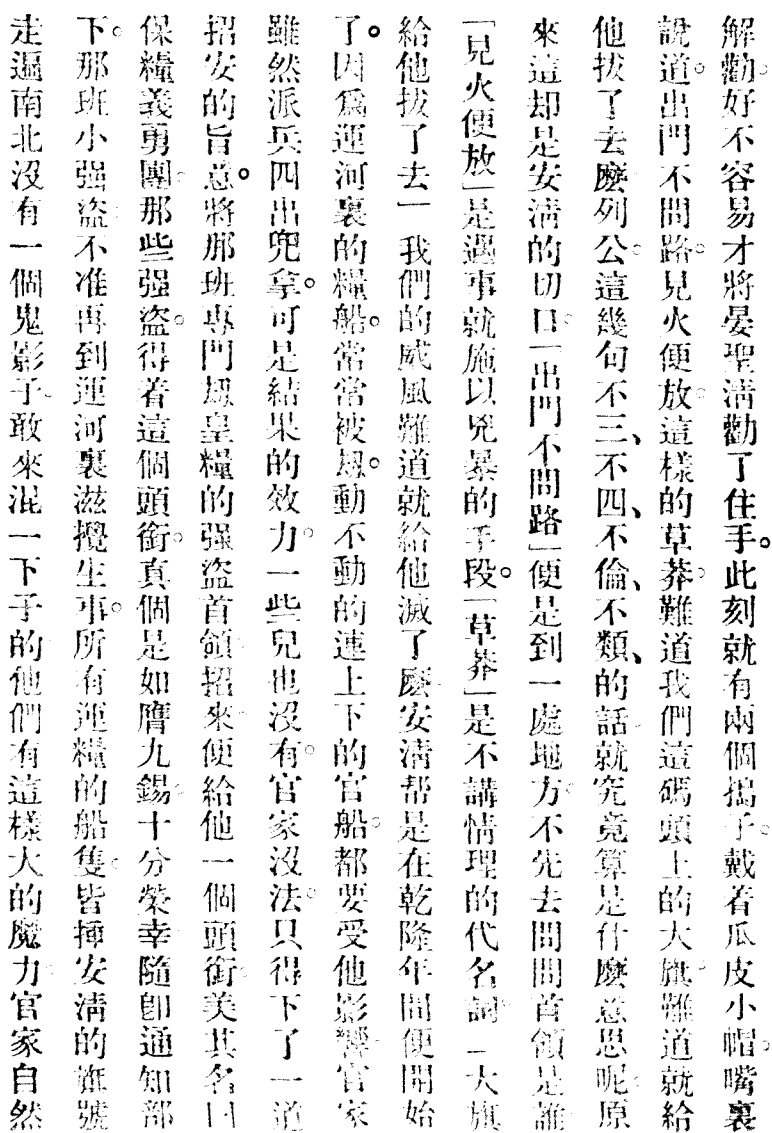 解勸。好不容易才將晏聖淸勸了住手。此刻就有兩個搗子。戴着瓜皮小帽。嘴裏
說道。出門不問路。見火便放。這樣的草莽。難道我們這碼頭上的大旗。難道就給
他拔了去麽。列公。這幾句不三、不四、不倫、不類、的話。就究竟算是什麽意思呢。原
來這却是安淸的切口。「出門不問路」便是到一處地方。不先去問問首領是誰
「見火便放」是遇事就施以兇暴的手段。「草莽」是不講情理的代名詞。「大旗
給他拔了去」我們的威風難道就給他滅了麽。安淸帮是在乾隆年間便開始
了。因爲運河裏的糧船。常常被刼。動不動的連上下的官船。都要受他影響。官家
雖然派兵四出兜拿。可是結果的效力。一些兒也沒有。官家沒法。只得下了一道
招安的旨意。將那班專門刼皇糧的强盜首領招來。便給他一個頭銜。美其名曰
保糧義勇團。那些强盜。得着這個頭銜。眞個是如膺九錫。十分榮幸。隨卽通知部
下。那班小强盜。不准再到運河裏滋攪生事。所有運糧的船隻。皆揷安淸的旗號
走遍南北。沒有一個鬼影子。敢來混一下子的。他們有這樣大的魔力。官家自然